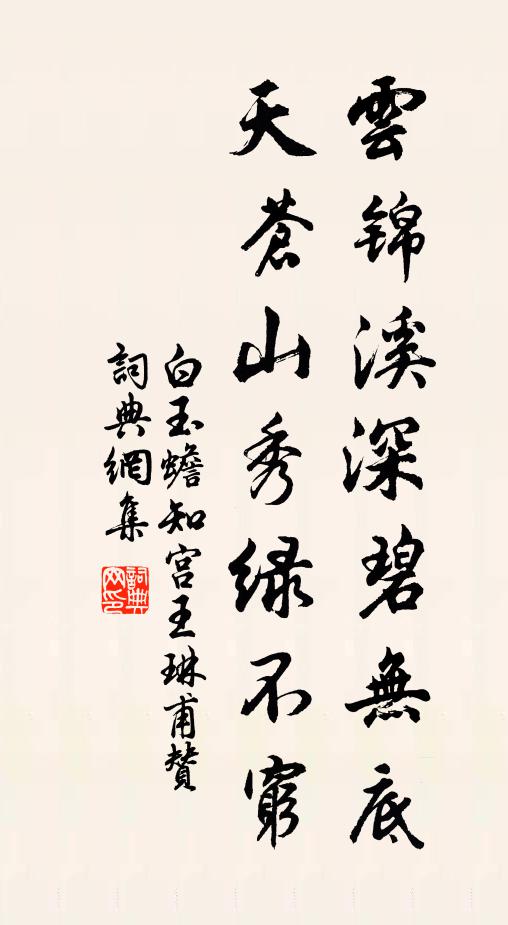 雲錦溪深碧無底
天蒼山秀緑不窮
白玉蟾知宮王琳甫贊
詞典網集
詞典
网印